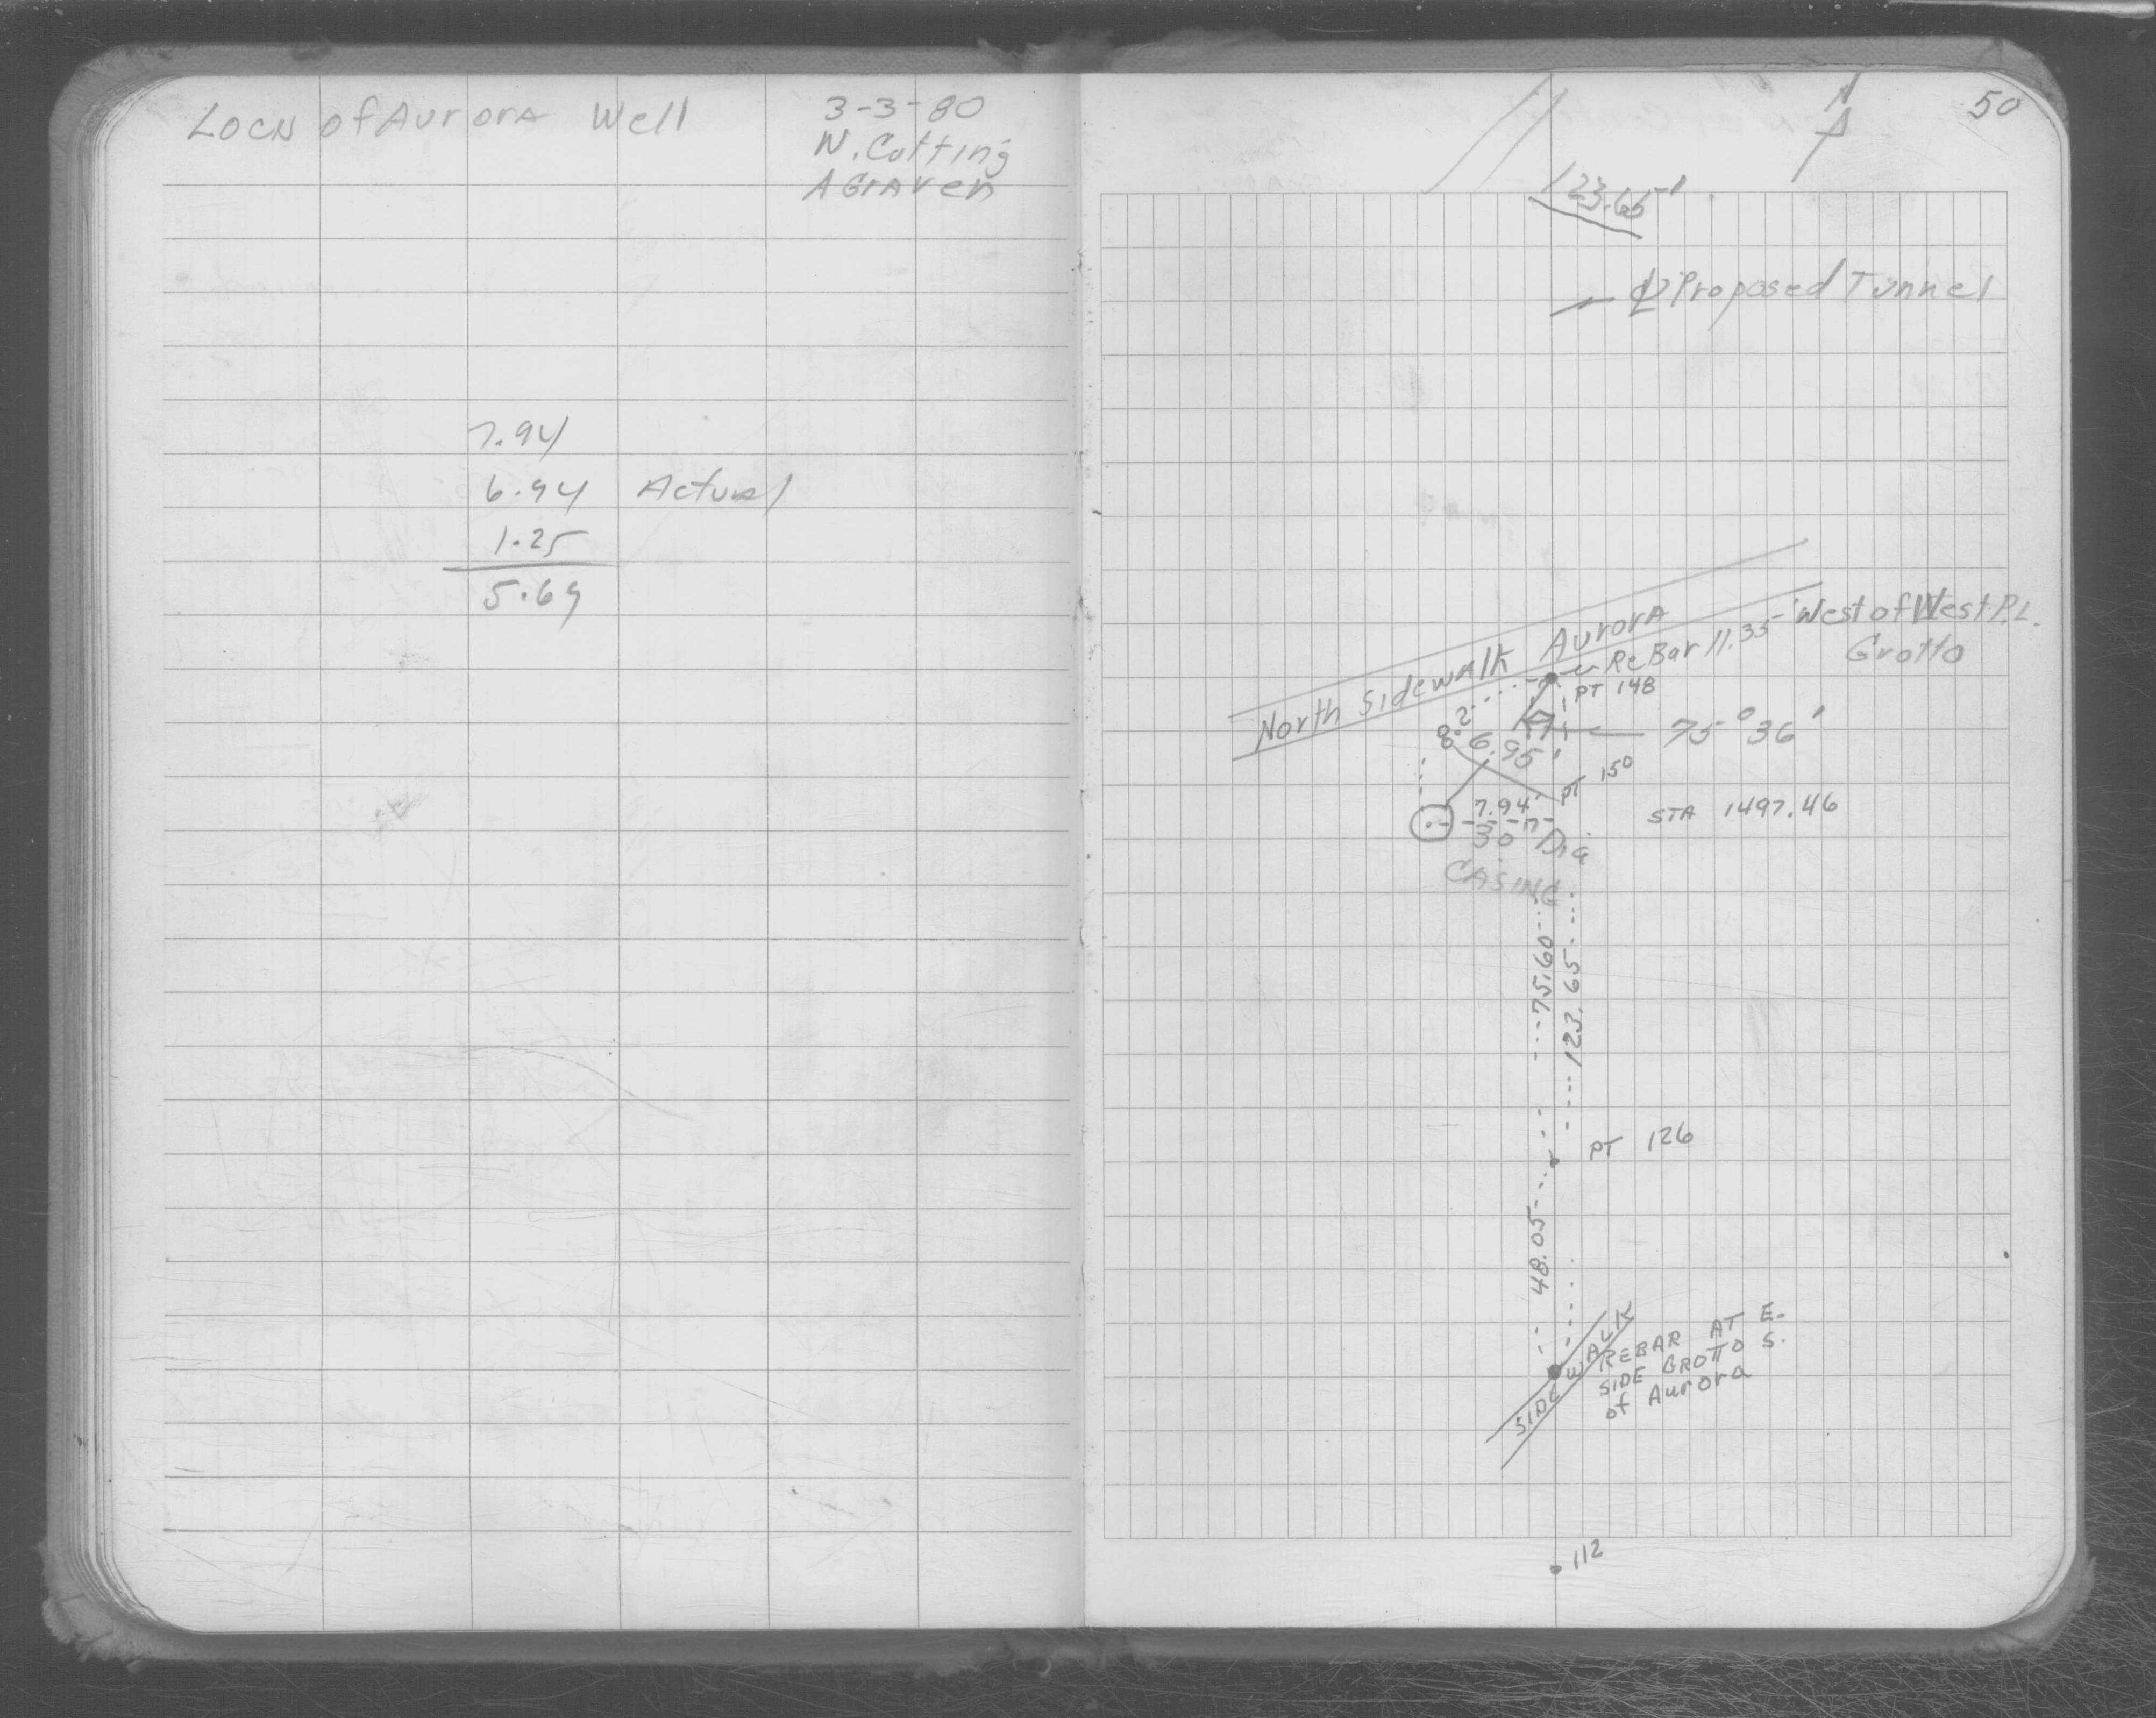 Locn of Aurora Well
3-3-80
N. Cotting
A Graven
7.94
6.94 Actual
1.25
5.69
50
N
123.65'
℄ Proposed Tunnel
North Sidewalk Aurora
ReBar 11.35' West of West P.L.
Grotto
PT 148
8.2
6.95'
75° 36'
PT 150
7.94'
STA 1497.46
30" Dia
CASING
75.60
123.65
PT 126
48.05
SIDEWALK
REBAR AT E.
SIDE GROTTO S.
of Aurora
112